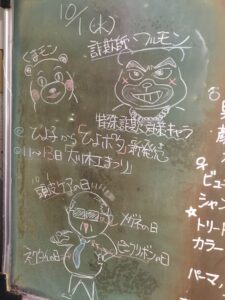 10/1(水)
くまモン
詐欺師・ワルモン
特殊詐欺啓発キャラ
ひよ子から「ひよポテ」新発売
11〜13日「大川木工まつり」
10/1
頭皮ケアの日
メガネの日
ネクタイの日
ピンクリボンの日
男
顔
ビュー
シャン
★トリート
カラー
パーマ